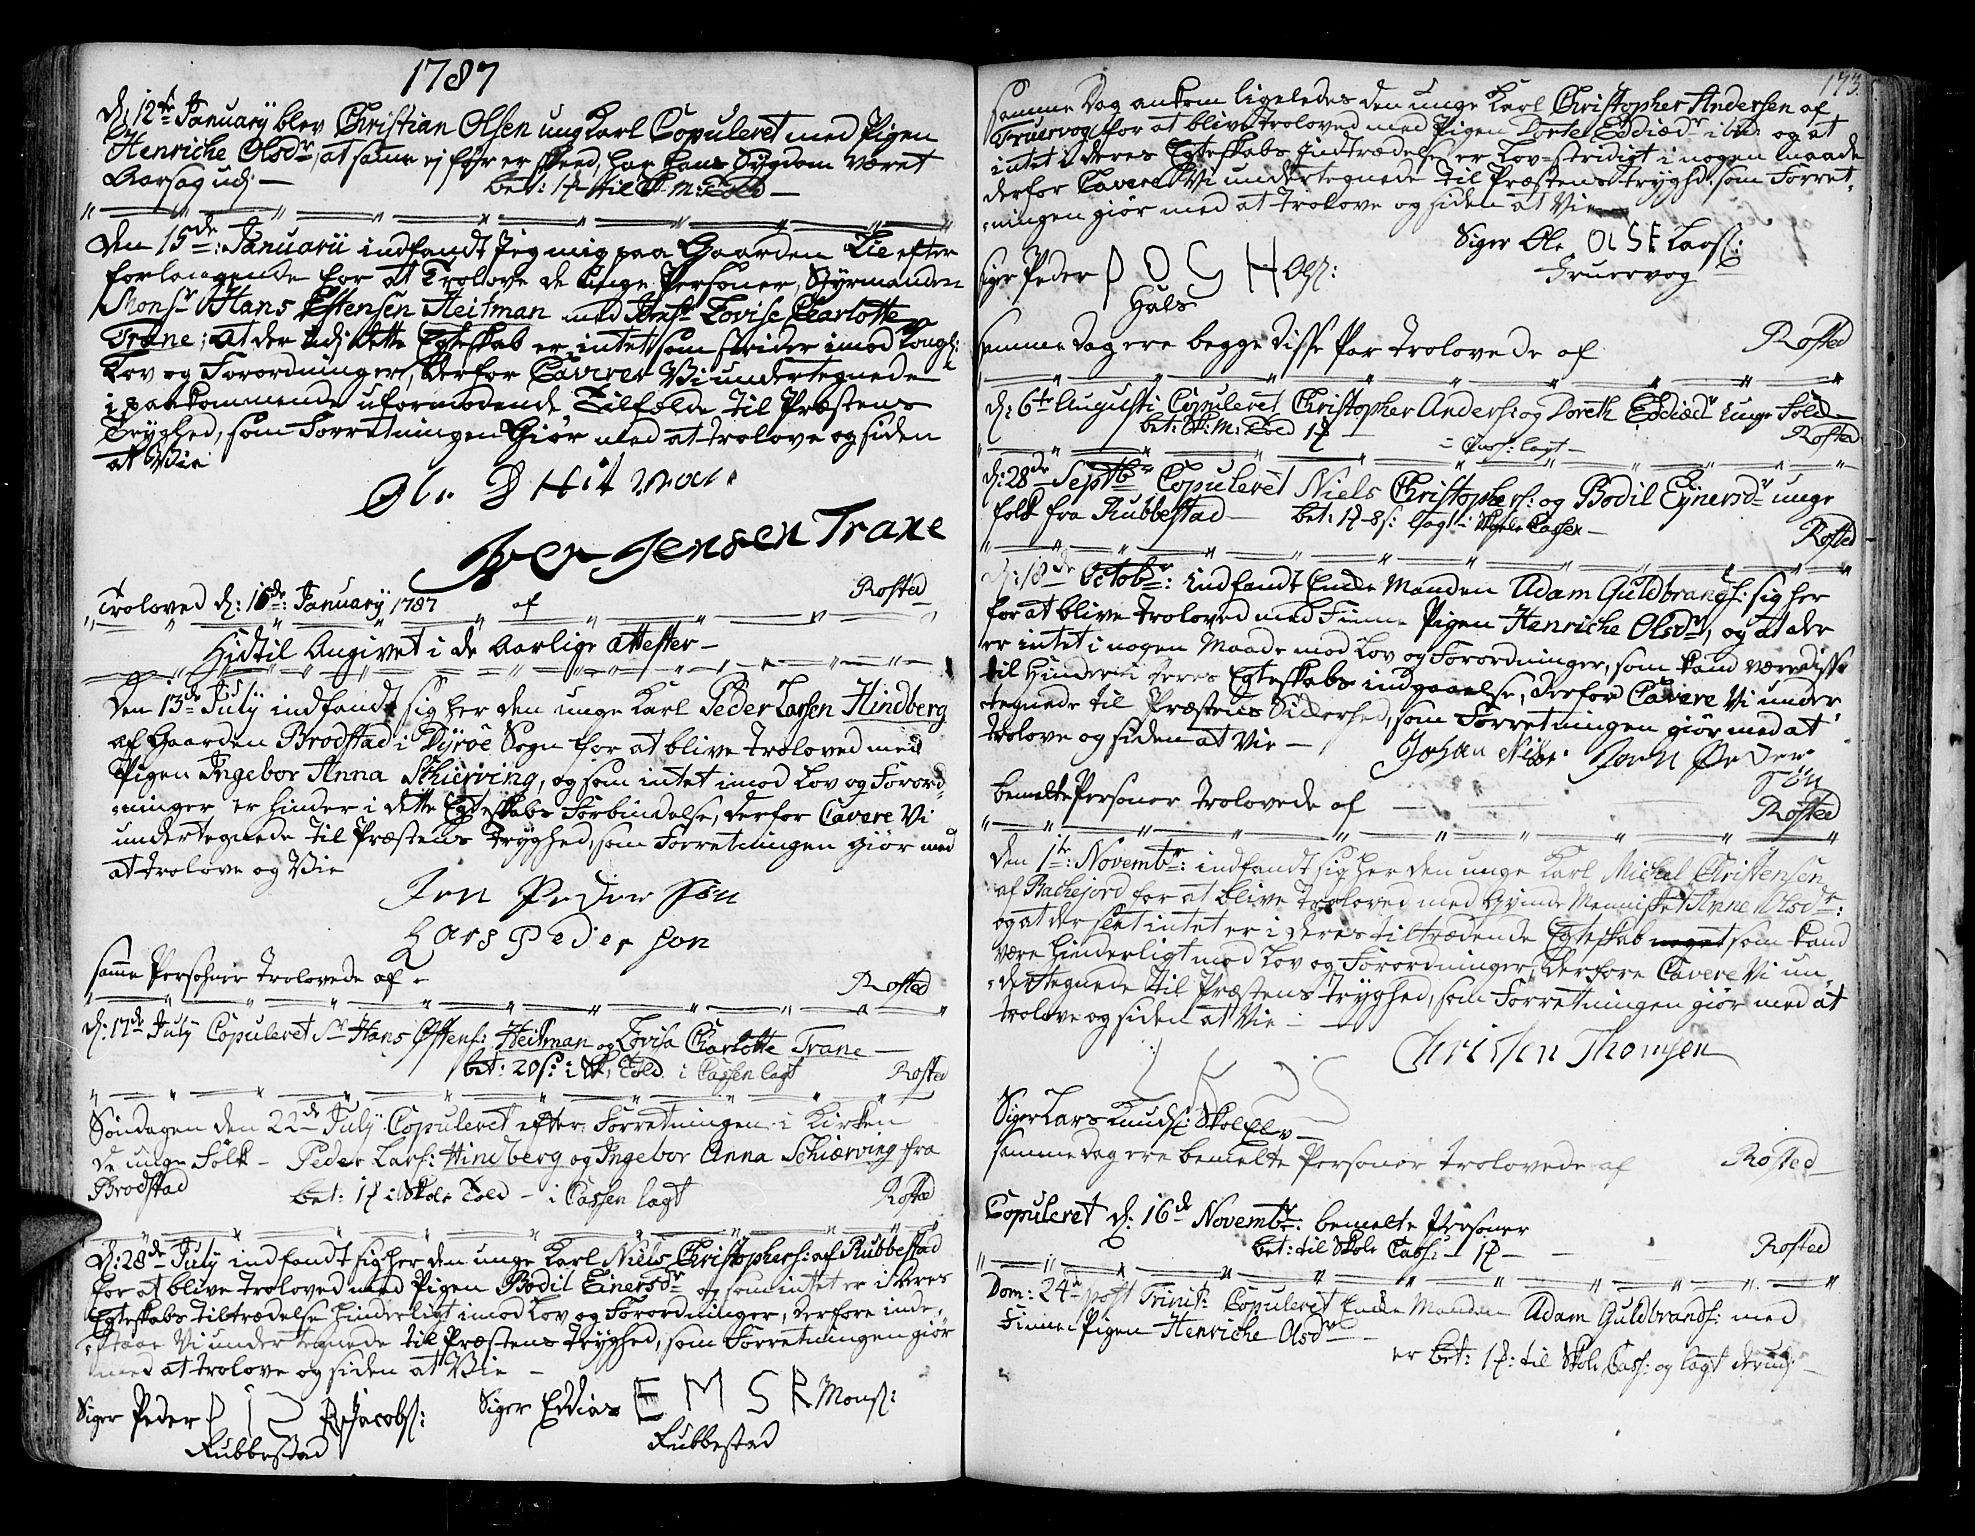 1787
d: 12te January blev Christian Olsen ung Karl Copuleret med Pigen
Henriche Olsdr, at samme ej før er skeed, har hans Sygdom været
Aarsag udj —
bet: 1 til Sk: M: Told —
Den 15de: Januarii indfandt jeg mig paa Gaarden Lie efter
forlangende for at Trolove de unge Personer, Styrmanden
Monsr Hans Østensen Heitman med Jomfr Lovise Charlotte
Trane; at der udj dette Egteskab er intet som strider imod Kongl:
Lov og Forordninger, derfor Caverer Vi undertegnede
i paakommende uformodende Tilfælde til Præstens
Tryghed, som Forretningen Giør med at trolove og siden
at Vie
Ole Hitman
Iver Jensen Trane
Troloved d: 15de: January 1787 af Rosted
Hidtil Angivet i de Aarlige Attester —
Den 13de July indfandt sig her den unge Karl Peder Larsen Hindberg
af Gaarden Brodstad i Dyrøe Sogn for at blive troloved med
Pigen Ingebor Anna Schierving, og som intet imod Lov og Forord-
ninger er hinder i dette Egteskabs Forbindelse, derfor Cavere Vi
undertegnede til Præstens Tryghed, som Forretningen giør med
at trolove og Vie
Jen Peder Søn
Lars Peder son
samme Personer trolovede af Rosted
d: 17de July Copuleret Sr Hans Østens: Heitman og Lovisa Charlotte Trane —
bet: 20 s: i Sk: Told i Cassen lagt Rosted
Søndagen den 22de July Copuleret efter Forretningen i Kirken
de unge Folk — Peder Lars: Hindberg og Ingebor Anna Schiærving fra
Brodstad bet: 1 i Skole Told — i Cassen lagt Rosted
d: 28de July indfandt sig her den unge Karl Niels Christophers: af Rubbestad
for at blive troloved med Pigen Bodil Einersdr og som intet er i deres
Egteskabs tiltrædelse hinderligt imod Lov og Forordninger, derfore inde-
staae Vi undertegnede til Præstens tryghed, som Forretningen giør
med at trolove og siden at Vie —
Siger Peder P I S R Jacobs:
Rubbestad
Siger Eddias E M S R Mons:
Rubbestad
173
samme Dag ankom ligeledes den unge Karl Christopher Andersen af
Truervog for at blive troloved med Pigen Dorte Eddiædr ibid: og at
intet i deres Egteskabs Indtrædelse er Lov-stridigt i nogen maade
derfor Cavere Vi undertegnede til Præstens tryghd: som Forret-
ningen giør med at trolove og siden at Vie
Siger Ole OLSE Lars:
Truervog
siger Peder P O G H Ols:
Hals
samme dag ere begge disse Par trolovede af Rosted
d: 6te Augusti Copuleret Christopher Anders: og Doreth Eddiædr unge Folk —
bet: Sk: M: Told 1 — i Cass: lagt — Rosted
d: 28de Septbr Copuleret Niels Christophers: og Bodil Eynersdr unge
folk fra Rubbestad — bet: 1 8 s: lagt i Skole Cassen — Rosted
d: 18de Octobr: indfandt Enke Manden Adam Guldbrands: sig her
for at blive troloved med Finne Pigen Henriche Olsdr, og at der
er intet i nogen Maade mod Lov og Forordninger, som kand være disse
til Hinder i deres Egteskabs indgaaelse, derfor Cavere Vi under
tegnede til Præstens Sikkerhed, som Forretningen giør med at
trolove og siden at Vie —
Johan Nils: Joen Peder
Søn
bemelte Personer trolovede af Rosted
Den 1te: Novembr: indfandt sig her den unge Karl Michel Christensen
af Bachejord for at blive troloved med Qvinde Mennisket Anne Olsdr:
og at der slet intet er i deres tiltrædende Egteskab noget som kand
være hinderligt mod Lov og Forordninger, derfore Cavere Vi un-
dertegnede til Præstens tryghed, som Forretningen giør med at
trolove og siden at Vie —
Christen Thomsen
Siger Lars Knuds: Skolelv —
samme dag ere bemelte Personer trolovede af Rosted
Copuleret d: 16de Novembr: bemelte Personer
bet: til Skole Cass: — 1 — Rosted
Dom: 24 post Trinit: Copuleret Enke Manden Adam Guldbrands: med
Finne Pigen Henriche Olsdr —
er bet: 1 : til Skole Cass: og lagt derudj —